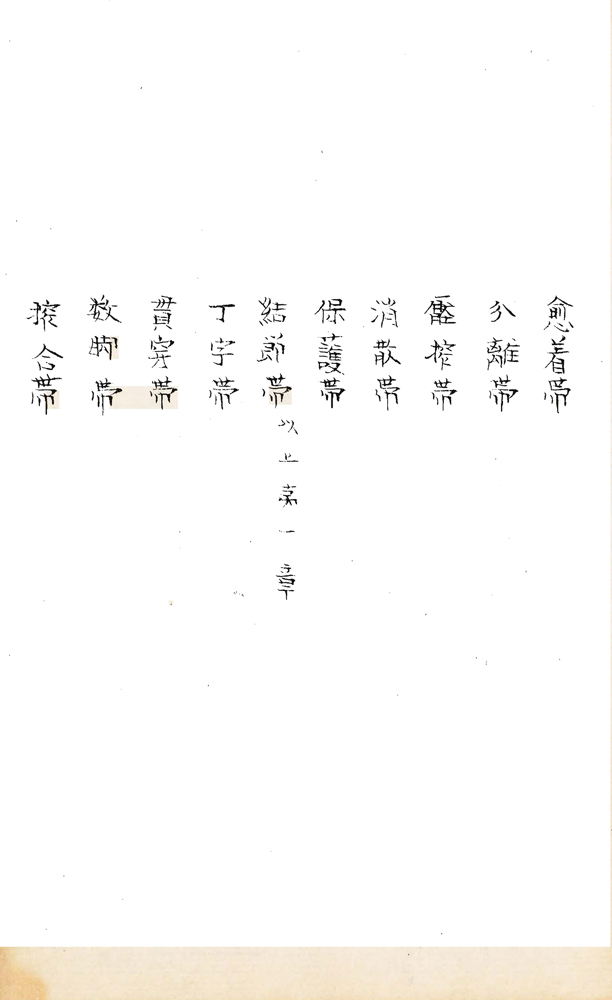 愈着帶
分離帶
壓搾帶
消散帶
保護帶
結節帶以上第一章
丁字帶
貫穿帶
数脚帶
搾合帶